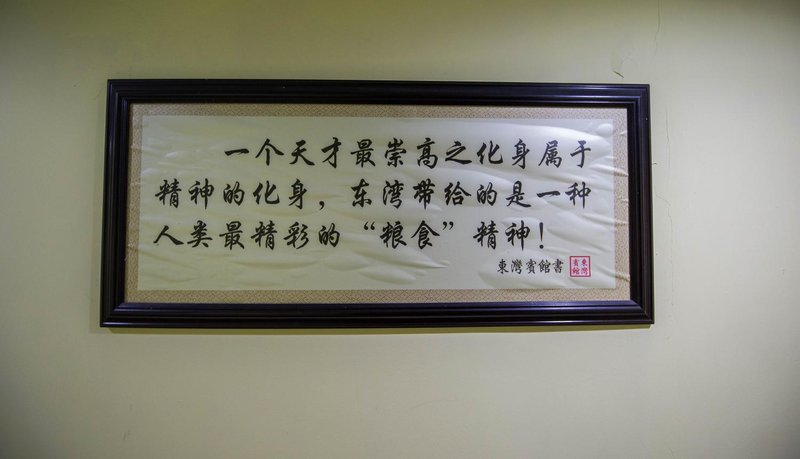 一个天才最崇高之化身属于
精神的化身，东湾带给的是一种
人类最精彩的“粮食”精神！
東灣賓館書
東灣
賓館